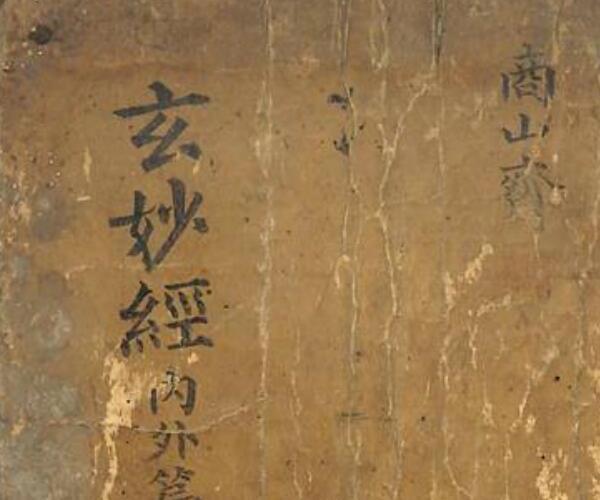 商山齋
玄妙經內外篇